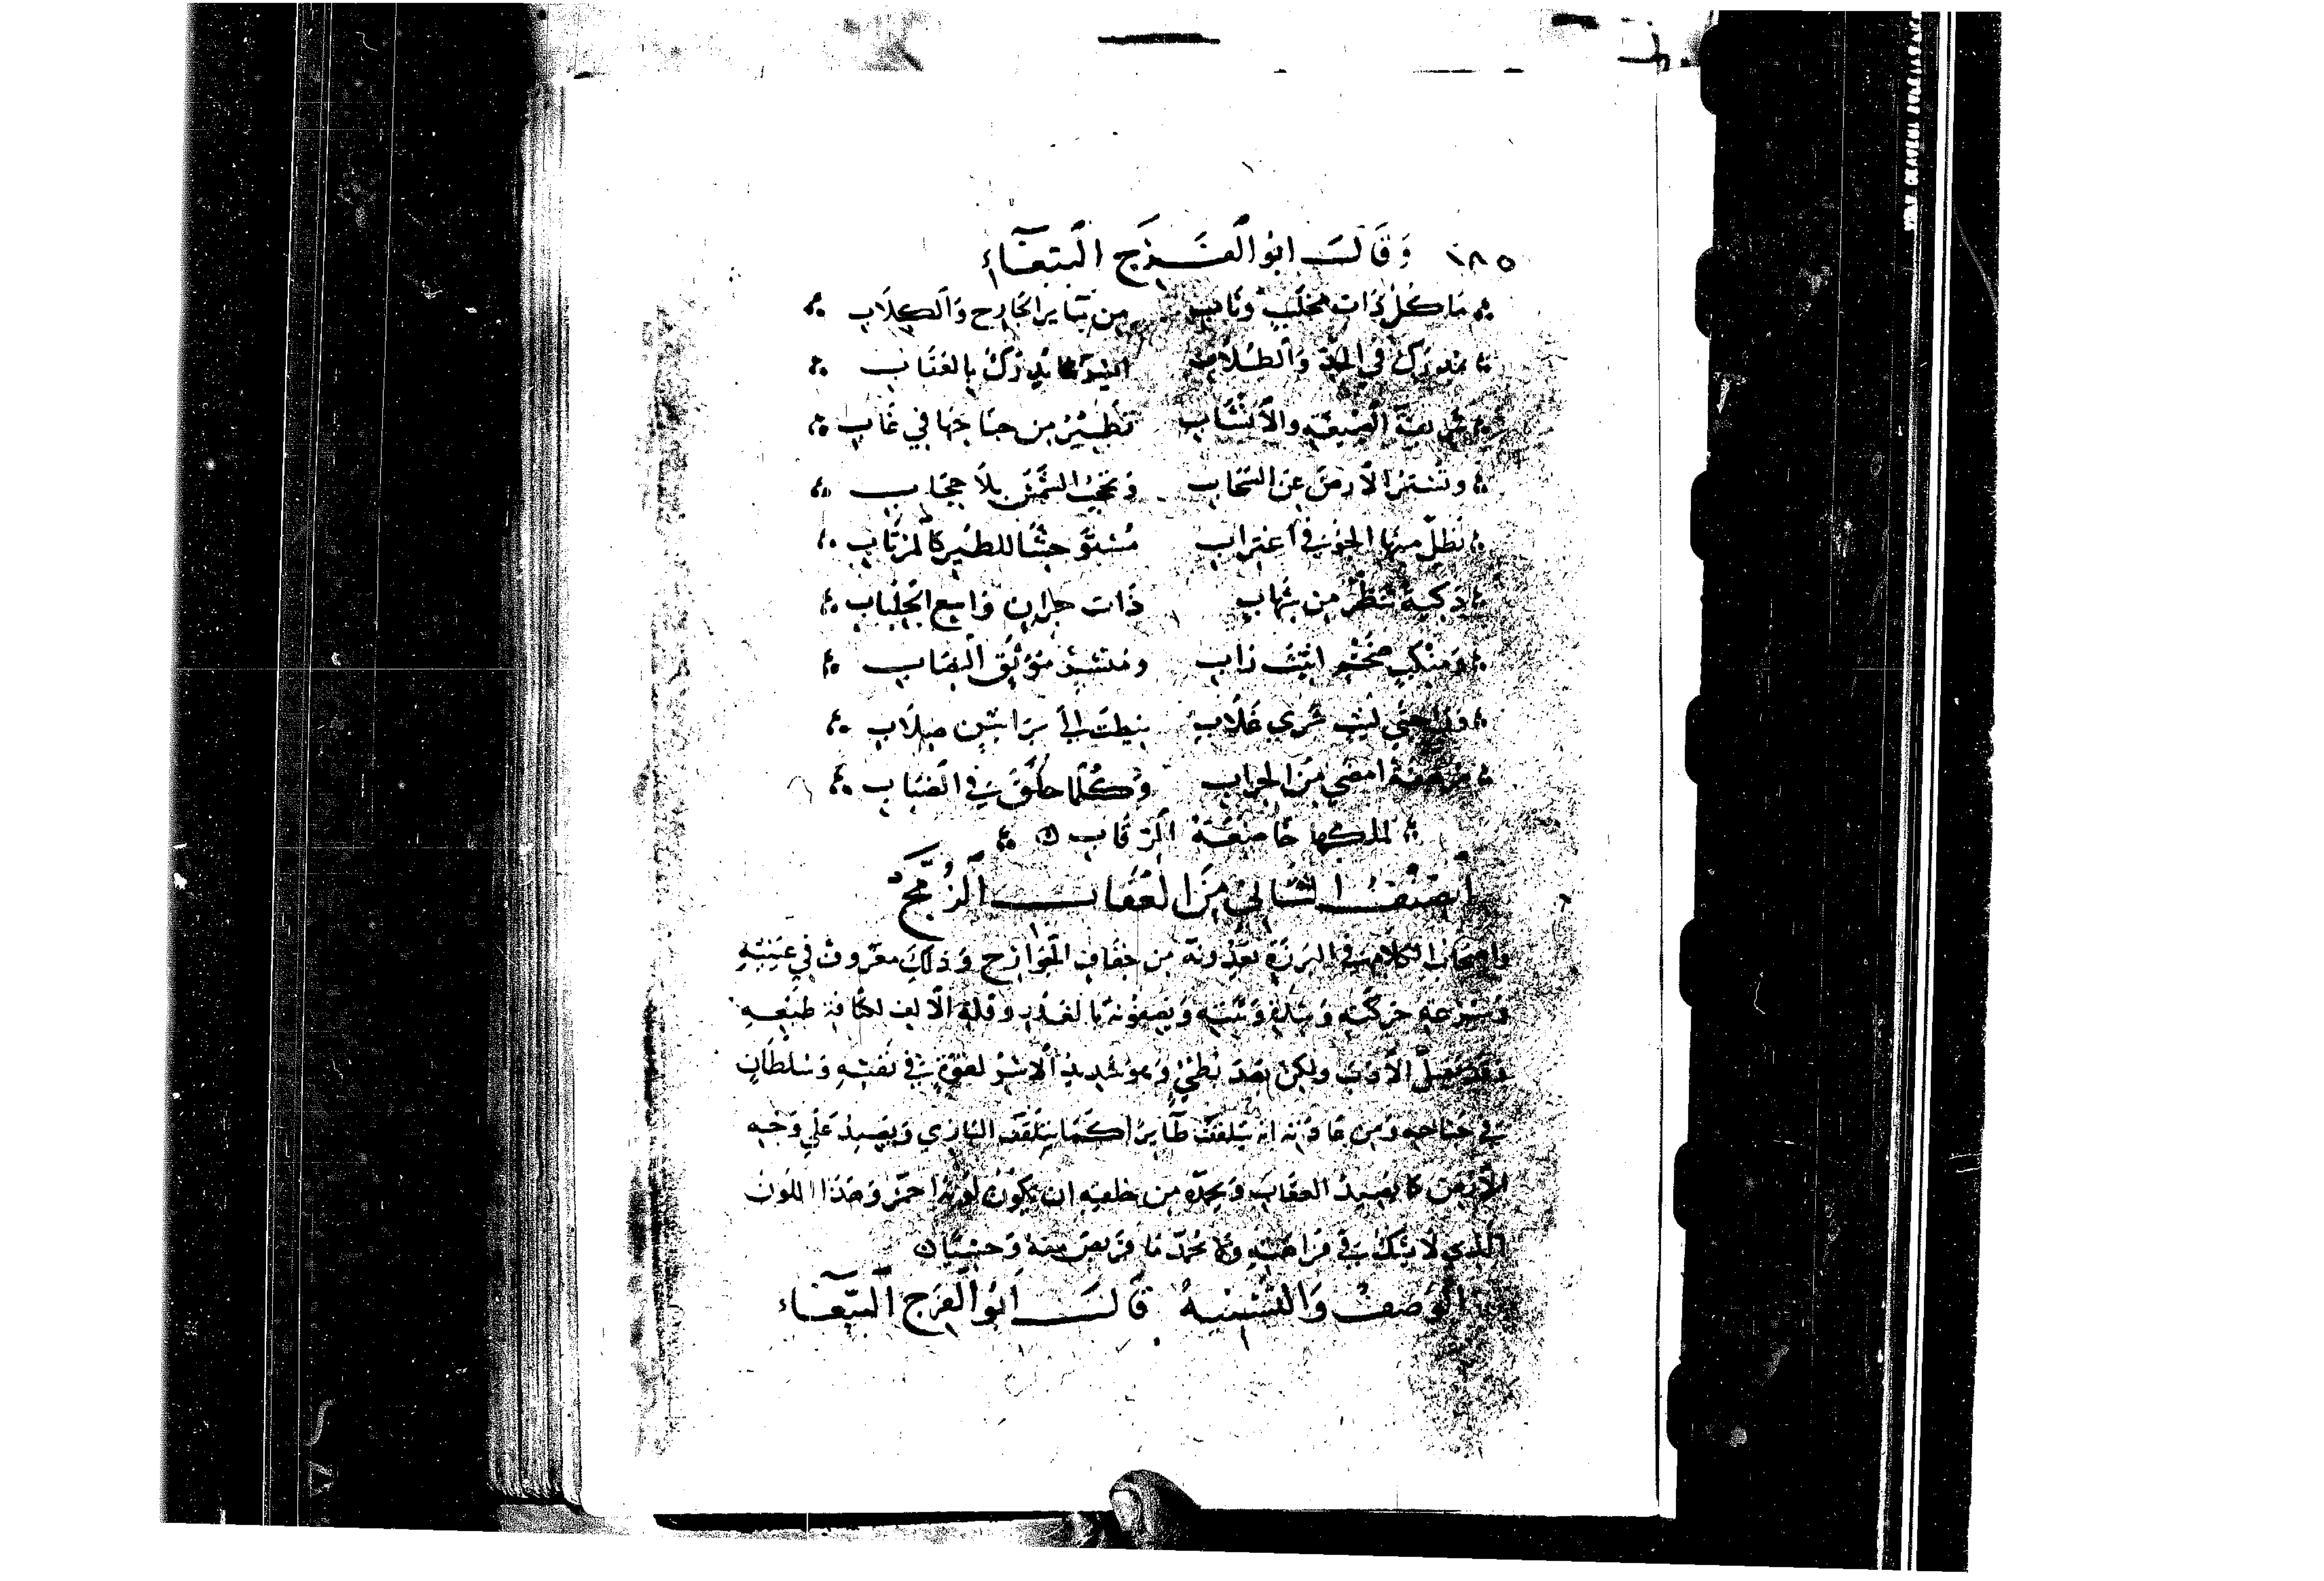 ١٨٥ وَقَالَ ابُو الْفَرَج الْبَبَّغَاءِ
مَا كُلُّ ذَات مخلبٍ ونَابِ من سَاير الجَارح وَالكِلَابِ
بمدرك في الجدّ وَالطلابِ ما يُدْرَكُ بالعُقَابِ
شريفة الصنعة والأنسَاب تطيرُ من جناحها في غَاب
وتستر الأرض عَنِ السَّحاب وتحجب الشمسَ بلَا حِجَاب
تظلّ منها الجوّ في اغتراب مستوحشًا للطير كَالمرتَاب
ذكيةٌ تنظر من شِهَابِ ذات جِرَان وَاسع الجِلبَاب
ومنكبٍ ضخمٍ اثيثٍ رَابِ ومنسرٍ موثق النصَاب
وراحتي ليث شرى غَلَّاب نيطت إلى براثن صِلَاب
مرهفة امضى من الحِرَاب وَكُلَّما حلّق في الضبَاب
لملكها خاضعَة الرِّقَاب
الصِّنْفُ الثَّانِي مِنَ الْعُقَاب الزُّمَّجُ
واصحاب الكلام في البزدرة يعدّونه من خفَاف الجَوَارِح وَذلك معروف في عينيهِ
وسُرْعَةِ حَركته وَشدّة وثبته وَيصفُونه بالغدر وقلة الالف لكثافة طبْعِهِ
الأدب ولكن بعد بُطْءٍ وَهو شديد الاسر لقوّةٍ في نفسهِ وَسُلطان
في جناحه ومن عَادته انه يتلقف طَايرًا كما يتلقف البَازي وَيصيد عَلى وَجْه
الأَرْض كما يصيد العقاب وَيحمد من خلقه ان يكون لونه احمر وَهَذا اللون
الذي لا يشك في فراهته وَلا يُحمد مَا قرنص منه وَحشيًا
الوَصْفُ وَالتشبيهُ قَالَ ابُو الْفَرَج الْبَبَّغَاء